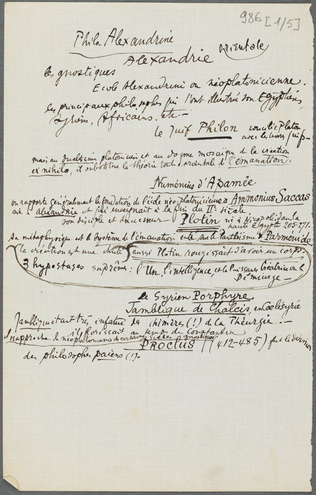 986 [1/5]
Phila Alexandrine
Alexandrie orientale
les gnostiques
Ecole Alexandrine ou néoplatonicienne.
les principaux philosophes qui l'ont illustrée son Egyptiens,
Syriens, Africains. etc –
le Juif Philon concilie Platon
avec les livres juifs
mais au dualisme platonicien et au dogme mosaïque de la création
ex nihilo, il substitue la théorie tout orientale de l'émanation.
Numénius d'Apamée
on rapporte généralement la fondation de l'école néoplatonicienne à Ammonius Saccas
né à Alexandrie et qui enseignait à la fin du IIe siècle
son disciple et successeur Plotin né à Nicopolis dans la
haute Egypte 205-271.
Sa métaphysique est le système de l'émanation
la création est une chute aussi Plotin rougissait d'avoir un corps
3 hypostases suprêmes: l'Un, l'intelligence et la Puissance
Démiurge –
le Syrien Porphyre
Jamblique de Chalcis, en Coelésyrie
Jamblique
des chimères (!) de la Théurgie –
il florissait au temps de Constantin
PROCLUS (412-485) fut le dernier
des philosophes païens (!).